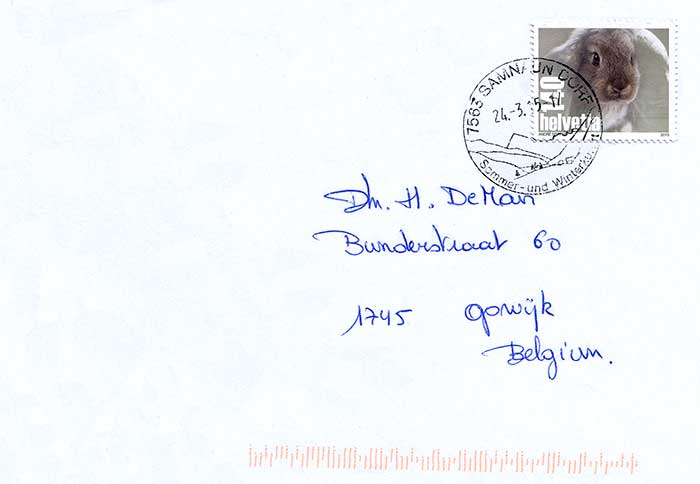 140
helvetia
7563 SAMNAUN DORF
24.-3.15-17
Sommer- und
Dhr. H. DeMan
Bunderstraat 60
1745 Opwijk
Belgium.